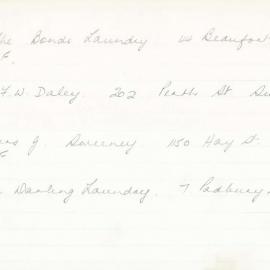 The Bonds Laundry 14 Beaufort
F.
F. W. Daley. 202 Perth St
J. Sweeney 1150 Hay St.
F
Darling Laundry. 7 Padbury